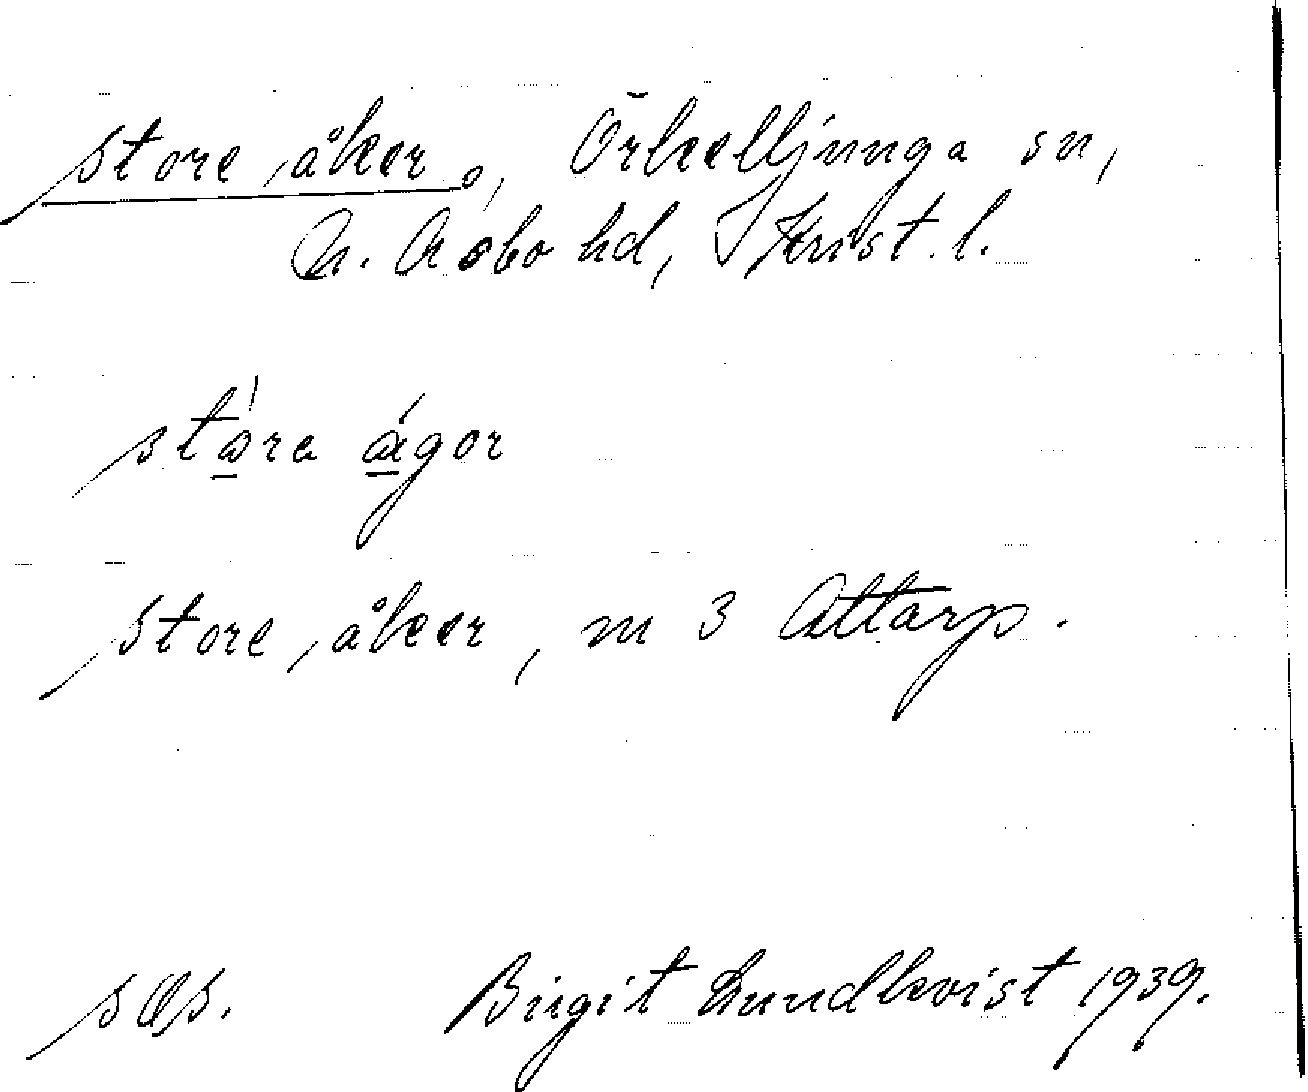 store åker, Örkelljunga sn,
N. Åsbo hd, Krist. l.
stára ágor
store åker, m 3 Attarp.
sås. Birgit Lundkvist 1939.